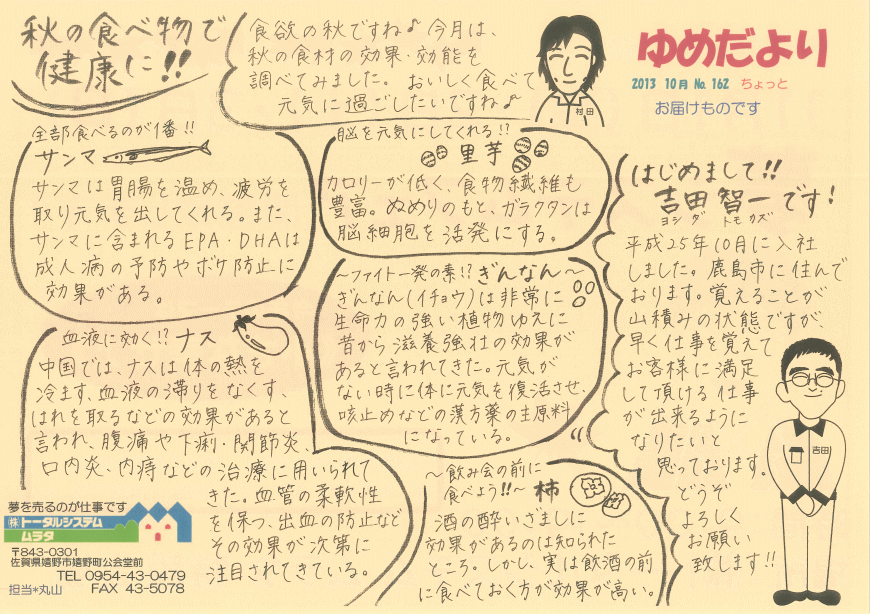 秋の食べ物で
健康に!!
食欲の秋ですね♪今月は、
秋の食材の効果・効能を
調べてみました。おいしく食べて
元気に過ごしたいですね♪
村田
ゆめだより
2013 10月 No.162 ちょっと
お届けものです
全部食べるのが1番!!
サンマ
サンマは胃腸を温め、疲労を
取り元気を出してくれる。また、
サンマに含まれるEPA・DHAは
成人病の予防やボケ防止に
効果がある。
脳を元気にしてくれる!?
里芋
カロリーが低く、食物繊維も
豊富。ぬめりのもと、ガラクタンは
脳細胞を活発にする。
〜ファイト一発の素!?ぎんなん〜
ぎんなん(イチョウ)は非常に
生命力の強い植物ゆえに
昔から滋養強壮の効果が
あると言われてきた。元気が
ない時に体に元気を復活させ、
咳止めなどの漢方薬の主原料
になっている。
血液に効く!?ナス
中国では、ナスは体の熱を
冷ます、血液の滞りをなくす、
はれを取るなどの効果があると
言われ、腹痛や下痢・関節炎、
口内炎、内痔などの治療に用いられて
きた。血管の柔軟性
を保つ、出血の防止など
その効果が次第に
注目されてきている。
〜飲み会の前に
食べよう!!〜 柿
酒の酔いざましに
効果があるのは知られた
ところ。しかし、実は飲酒の前
に食べておく方が効果が高い。
はじめまして!!
吉田 智一です!
ヨシダ トモカズ
平成25年10月に入社
しました。鹿島市に住んで
おります。覚えることが
山積みの状態ですが、
早く仕事を覚えて
お客様に満足
して頂ける仕事
が出来るように
なりたいと
思っております。
どうぞ
よろしく
お願い
致します!!
吉田
夢を売るのが仕事です
㈱トータルシステム
ムラタ
〒843-0301
佐賀県嬉野市嬉野町公会堂前
TEL 0954-43-0479
担当*丸山 FAX 43-5078